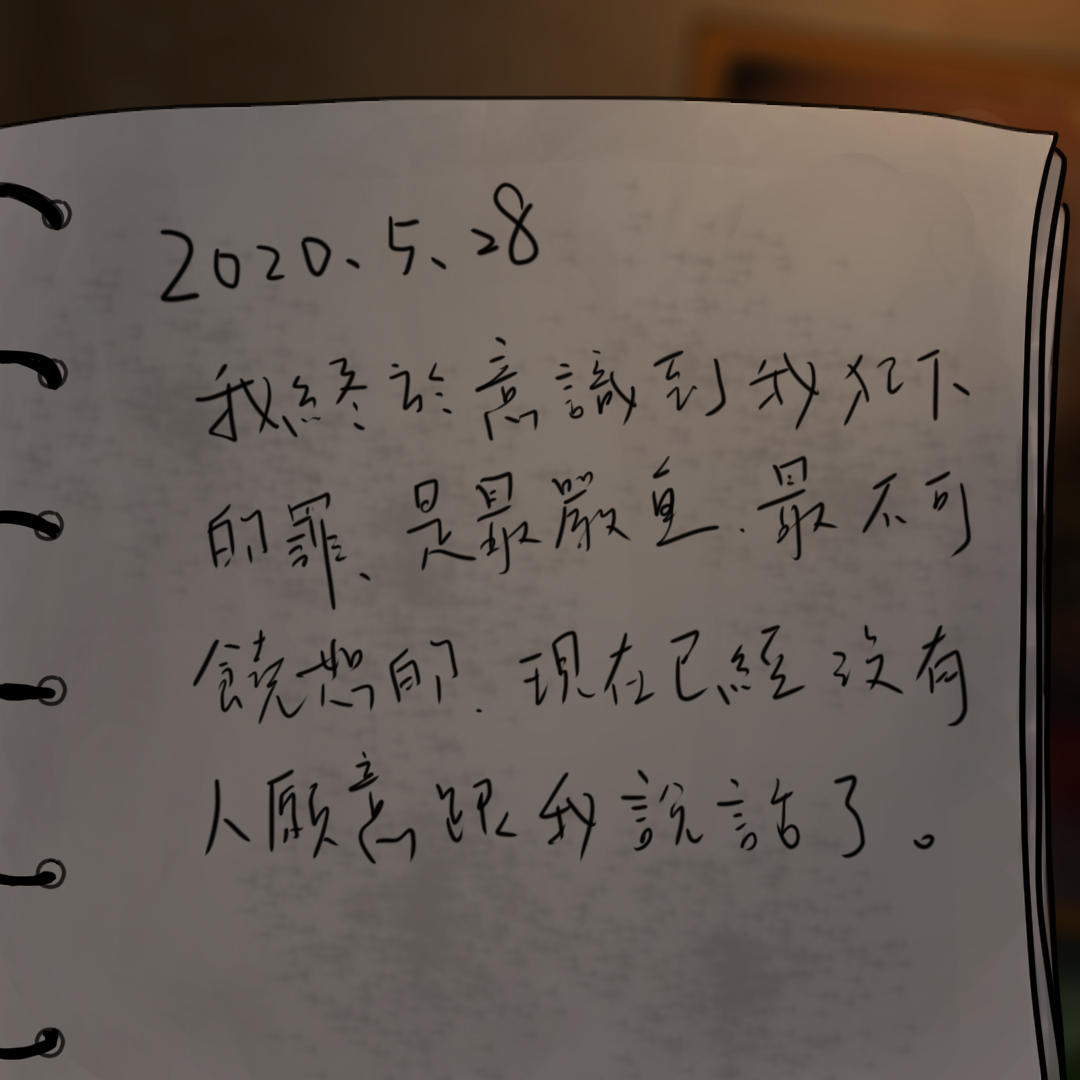 2020、5、28
我終於意識到我犯下
的罪、是最嚴重、最不可
饒恕的、現在已經沒有
人願意跟我說話了。